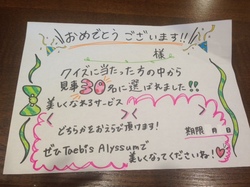 おめでとうございます!!
様
クイズに当たった方の中から
見事30名に選ばれました!!
美しくなれるサービス
< > < >
どちらかをおえらび頂けます!
期限 月 日
ぜひ Toebi's Alyssumで
美しくなってくださいね!